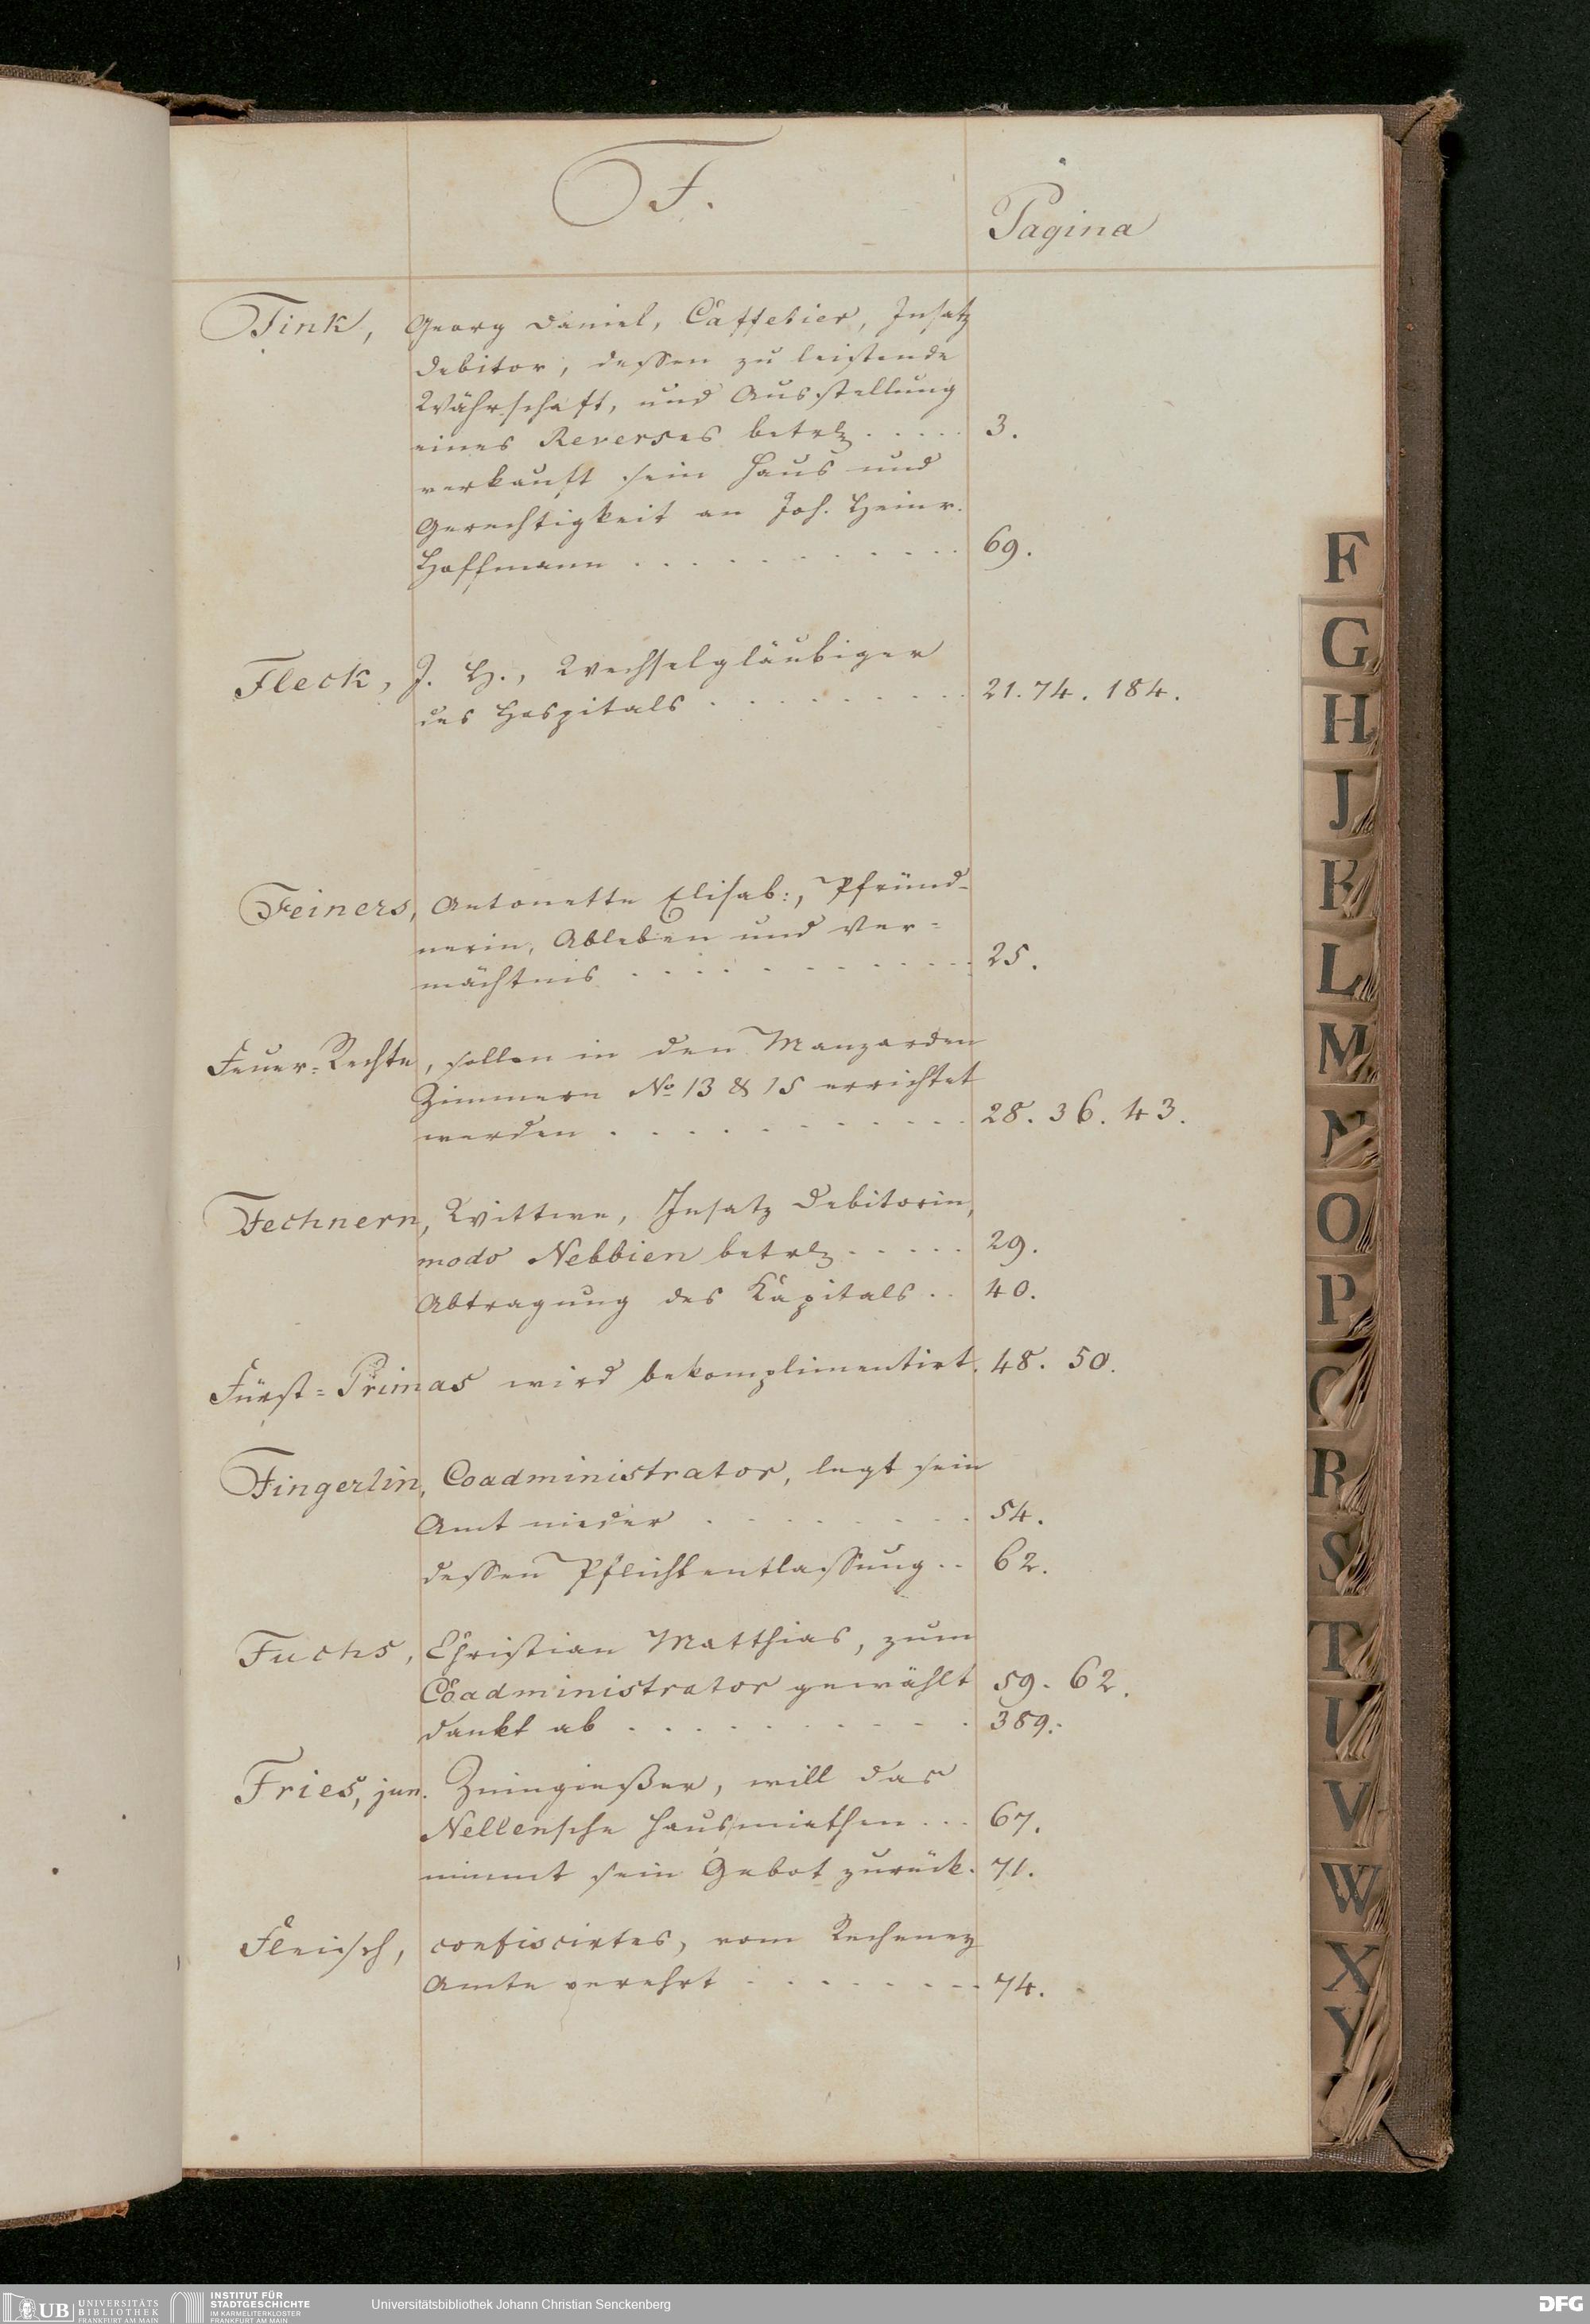 F.
Pagina
Fink, Georg Daniel, Caffetier, Insatz
Debitor, dessen zu leistende
Währschaft, und Ausstellung
eines Reverses betrlz . . . . . 3.
verkauft sein Haus und
Gerechtigkeit an Joh. Heinr.
Hoffmann . . . . . . . . . 69.
Fleck, J. H., Wechselgläubiger
des Hospitals . . . . . . . 21. 74. 184.
Feiners, Antonette Elisab:, Pfründ-
nerin, Ableben und Ver-
mächtnis . . . . . . . . . 25.
Feuer-Rechte, sollen in den Manzarden
Zimmern No 13 & 15 errichtet
werden . . . . . . . . . . 28. 36. 43.
Fechnern, Wittwe, Insatz Debitorin,
modo Nebbien betrlz . . . . . 29.
Abtragung des Kapitals . . 40.
Fürst-Primas wird bekomplimentirt. 48. 50.
Fingerlin, Coadministrator, legt sein
Amt nieder . . . . . . . . 54.
dessen Pflichtentlassung . . 62.
Fuchs, Christian Matthias, zum
Coadministrator gewählt 59. 62.
dankt ab . . . . . . . . . . 389.
Fries, jun. Zinngießer, will das
Nellensche Haus miethen . . . 67.
nimmt sein Gebot zurück. 71.
Fleisch, confiscirtes, vom Recheney
Amte verehrt . . . . . . . . 74.
F
G
H
J
K
L
M
N
O
P
Q
R
S
T
U
V
W
X
Y
UB UNIVERSITÄTS
BIBLIOTHEK
FRANKFURT AM MAIN
INSTITUT FÜR
STADTGESCHICHTE
IM KARMELITERKLOSTER
FRANKFURT AM MAIN
Universitätsbibliothek Johann Christian Senckenberg
DFG